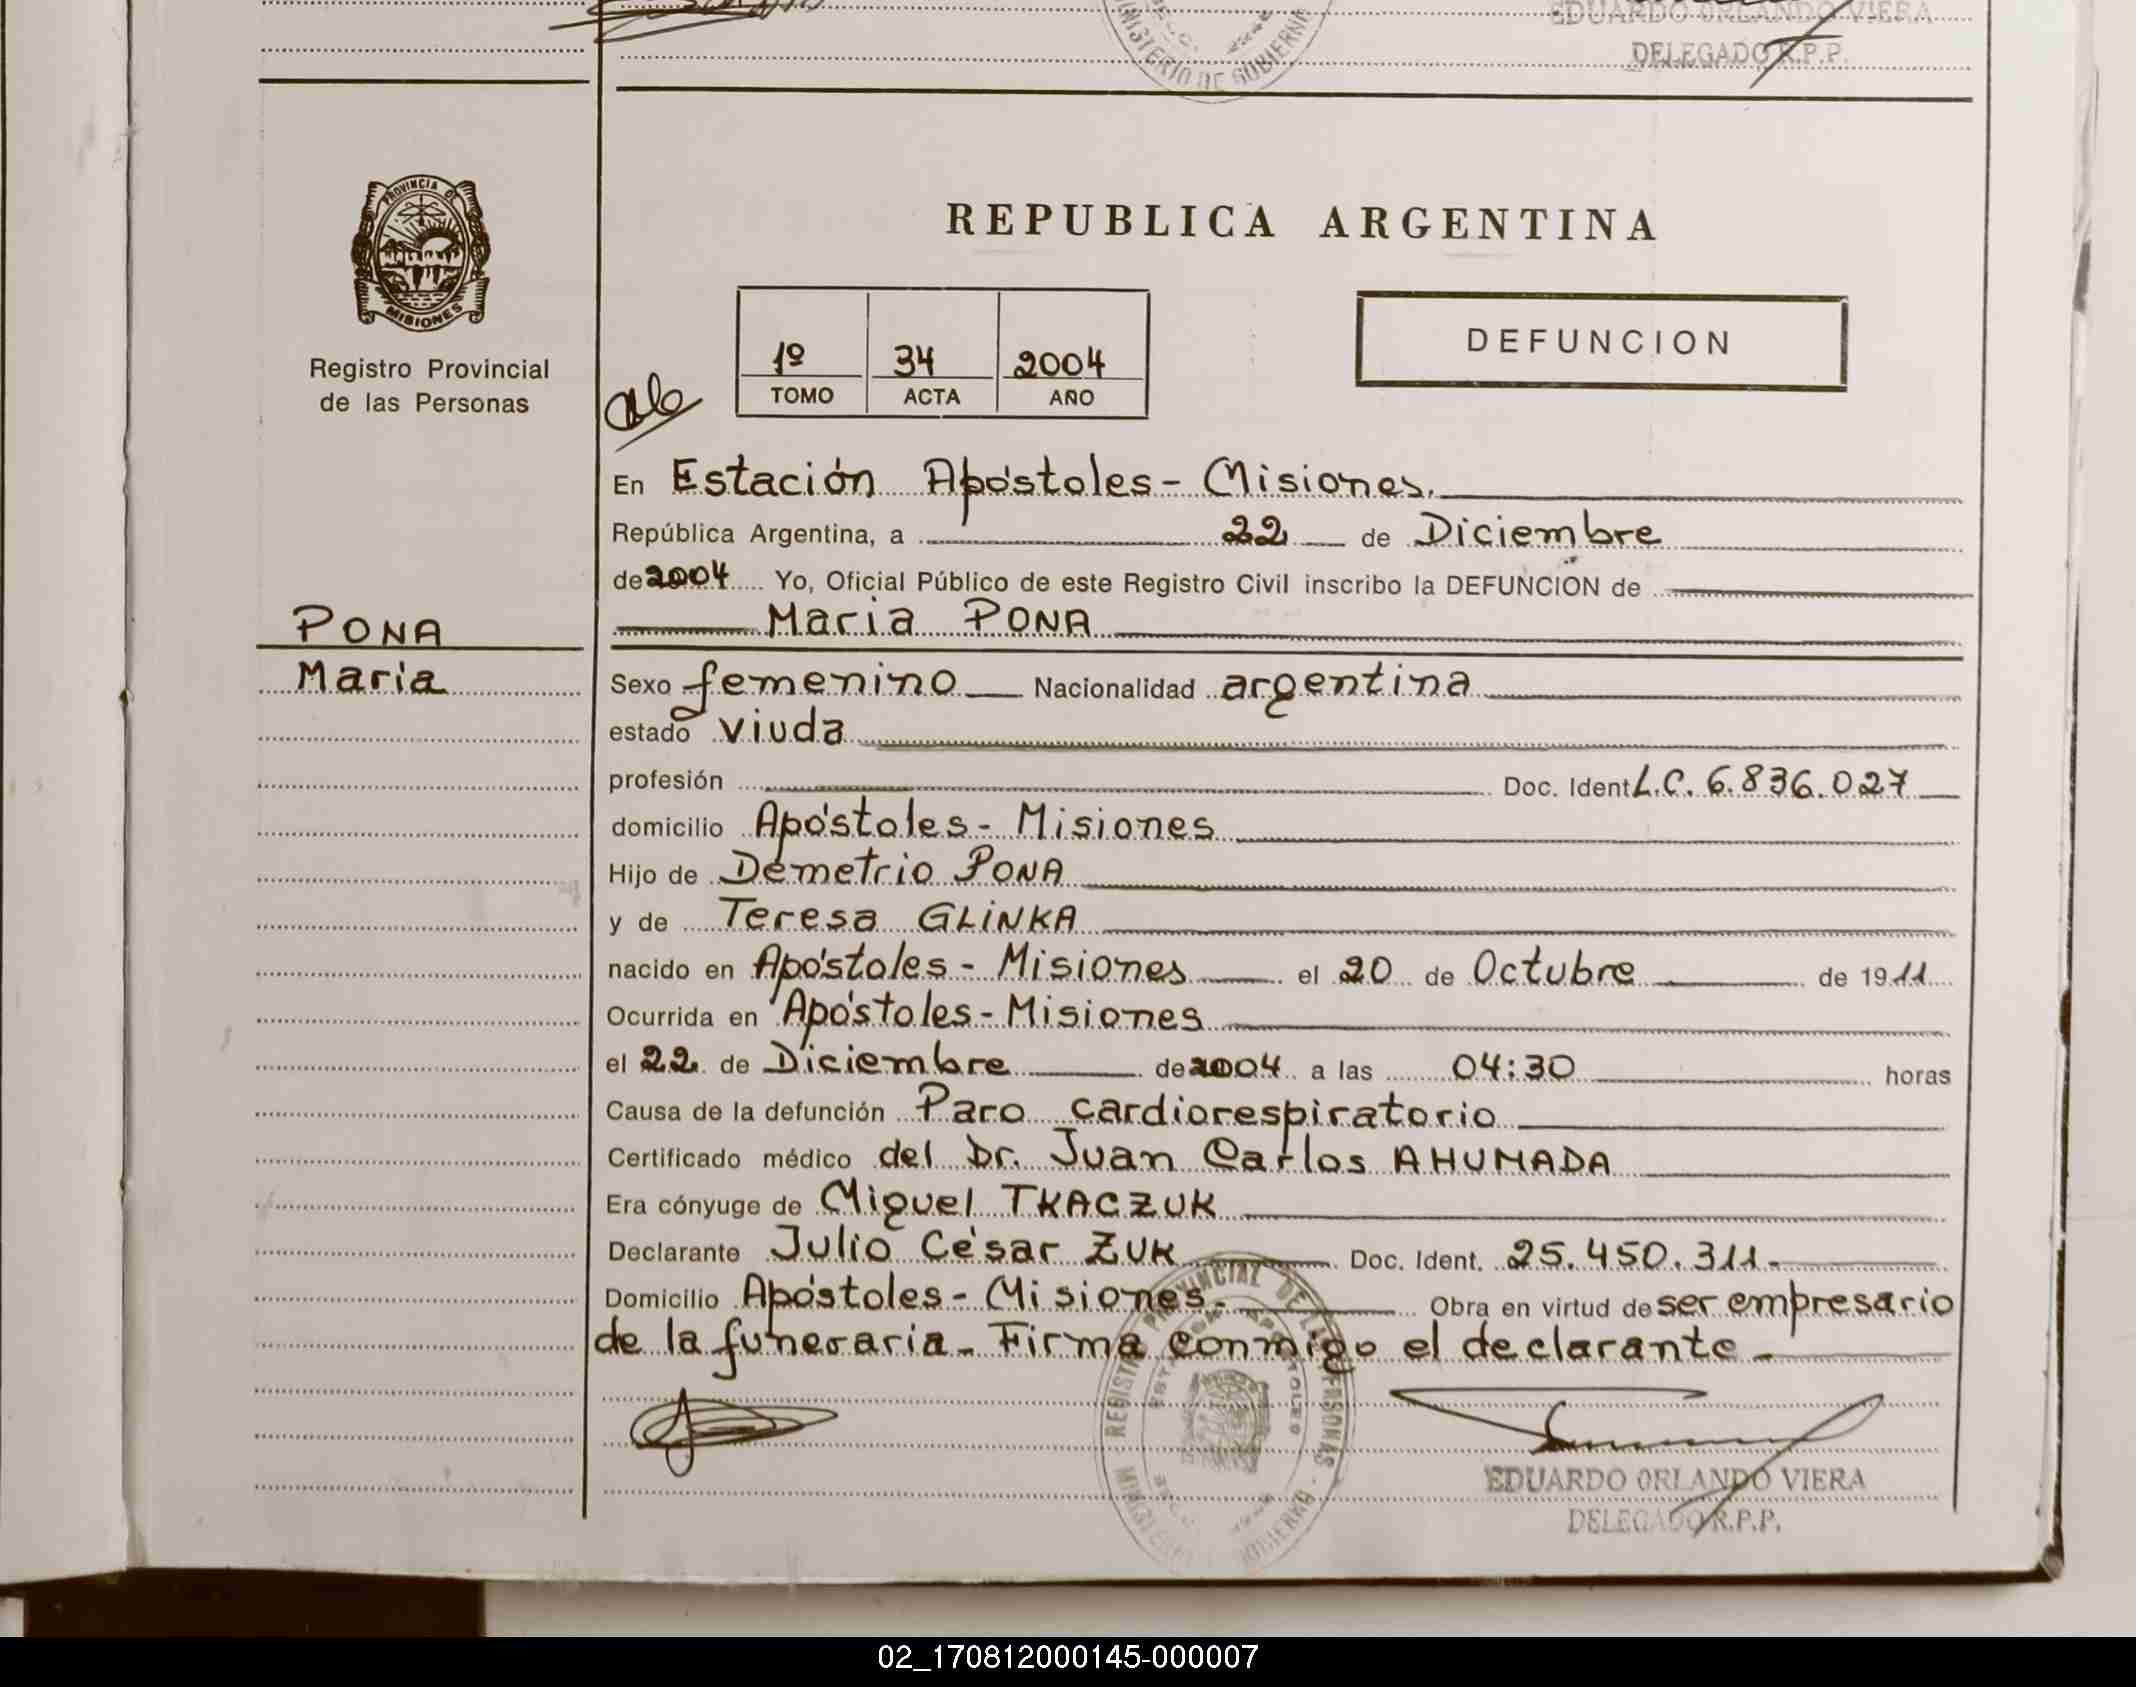 EDUARDO ORLANDO VIERA
DELEGADO R.P.P.
MINISTERIO DE GOBIERNO
PROVINCIA DE
MISIONES
Registro Provincial
de las Personas
REPUBLICA ARGENTINA
1º 34 2004
TOMO ACTA AÑO
DEFUNCION
En Estación Apóstoles - Misiones.
República Argentina, a 22 de Diciembre
de 2004 Yo, Oficial Público de este Registro Civil inscribo la DEFUNCIÓN de
Maria PONA
PONA
Maria
Sexo femenino Nacionalidad argentina
estado viuda
profesión Doc. Ident L.C. 6.836.027
domicilio Apóstoles - Misiones
Hijo de Demetrio PONA
y de Teresa GLINKA
nacido en Apóstoles - Misiones el 20 de Octubre de 1911
Ocurrida en Apóstoles - Misiones
el 22 de Diciembre de 2004 a las 04:30 horas
Causa de la defunción Paro cardiorespiratorio
Certificado médico del Dr. Juan Carlos AHUMADA
Era cónyuge de Miguel TKACZUK
Declarante Julio César ZUK Doc. Ident. 25.450.311.-
Domicilio Apóstoles - Misiones.- Obra en virtud de ser empresario
de la funeraria - Firma conmigo el declarante -
REGISTRO PROVINCIAL DE LAS PERSONAS
EDUARDO ORLANDO VIERA
DELEGADO R.P.P.
02_170812000145-000007